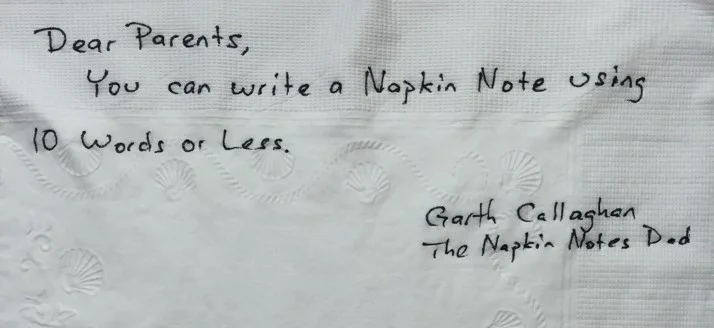 Dear Parents,
You can write a Napkin Note using
10 Words or Less.
Garth Callaghan
The Napkin Notes Dad